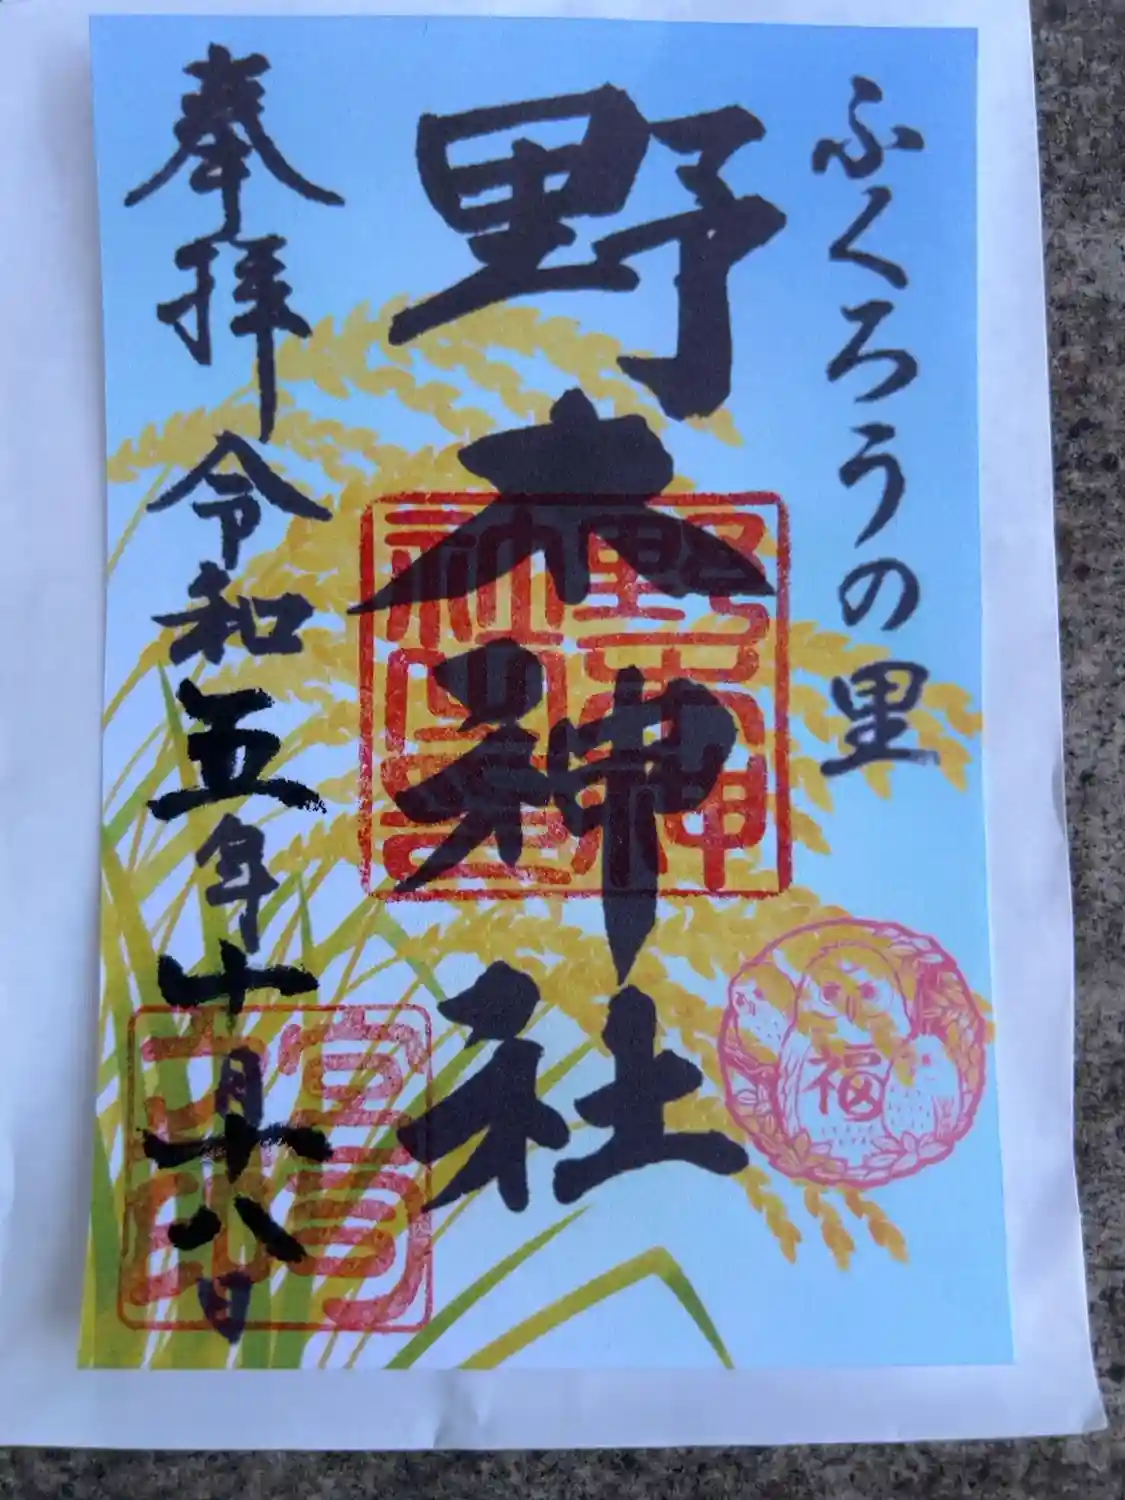 ふくろうの里
野木神社
奉拝
令和五年十月十八日
福
野木神
社
宮司
印